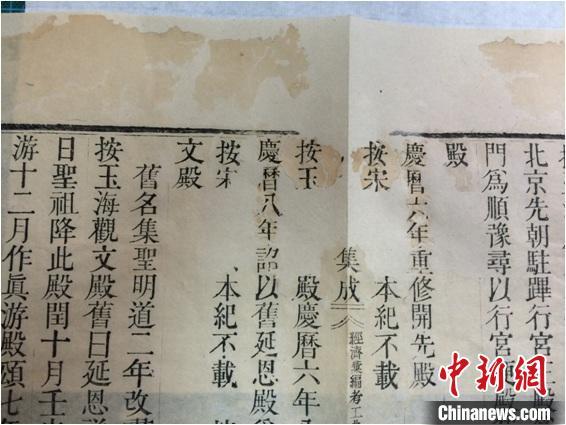 北京先朝駐蹕行宮正殿
門爲順豫尋以行宮便殿
殿
慶曆六年重修開先殿
按宋 本紀不載
集成 經濟彙編考工典
按玉 殿慶曆六年
慶曆八年詔以舊延恩殿爲
按宋 本紀不載
文殿
舊名集聖明道二年改
按玉海觀文殿舊曰延恩
日聖祖降此殿閏十月壬
游十二月作眞游殿頌七年
中新网
Chinanews.com